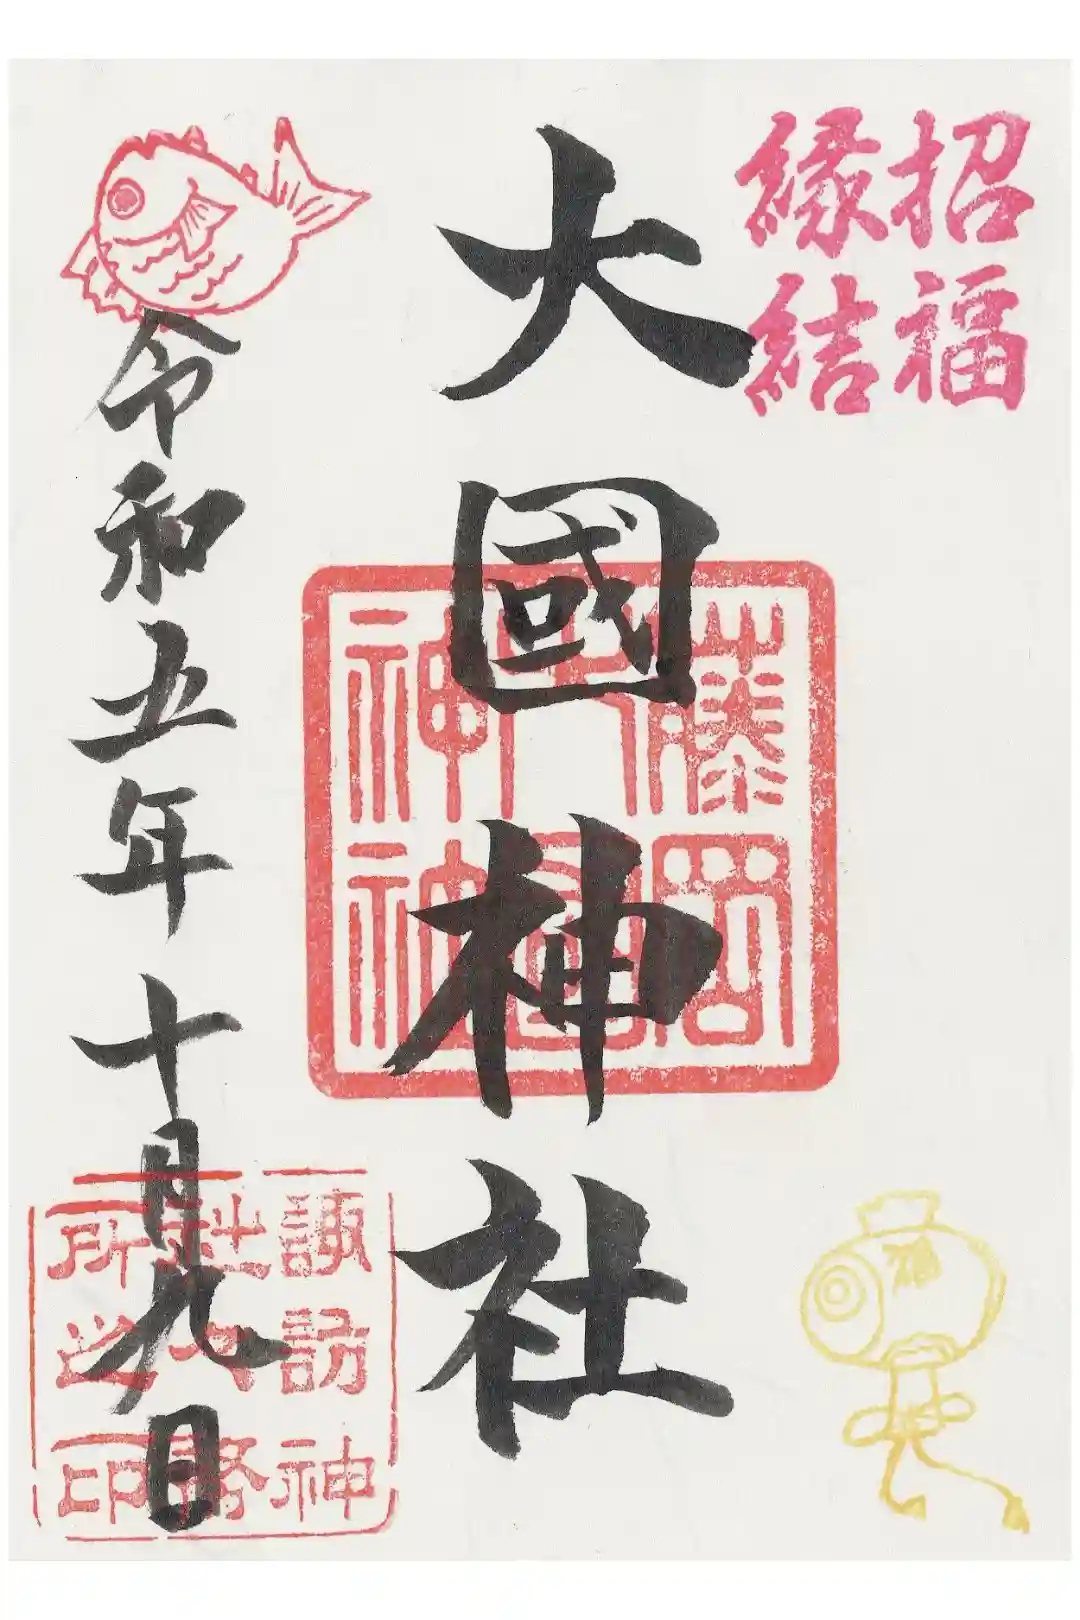 招福
縁結
大國神社
藤岡
大國
神社
令和五年十月九日
諏訪神
社々務
所之印